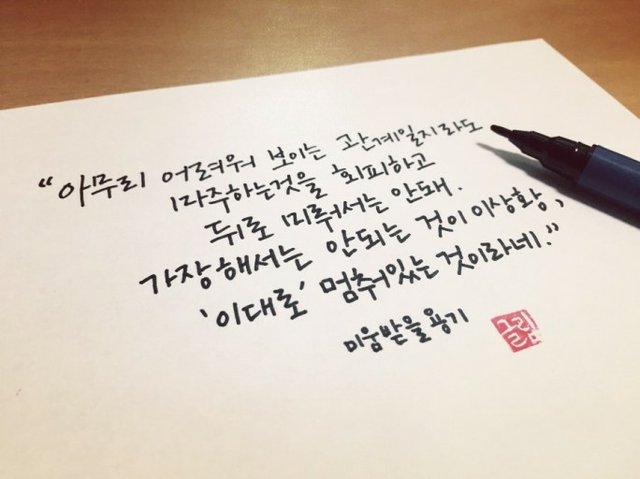 “아무리 어려워 보이는 관계일지라도
마주하는것을 회피하고
뒤로 미뤄서는 안돼.
가장 해서는 안되는 것이 이상황,
‘이대로’ 멈춰있는 것이라네.”
미움받을 용기
그린